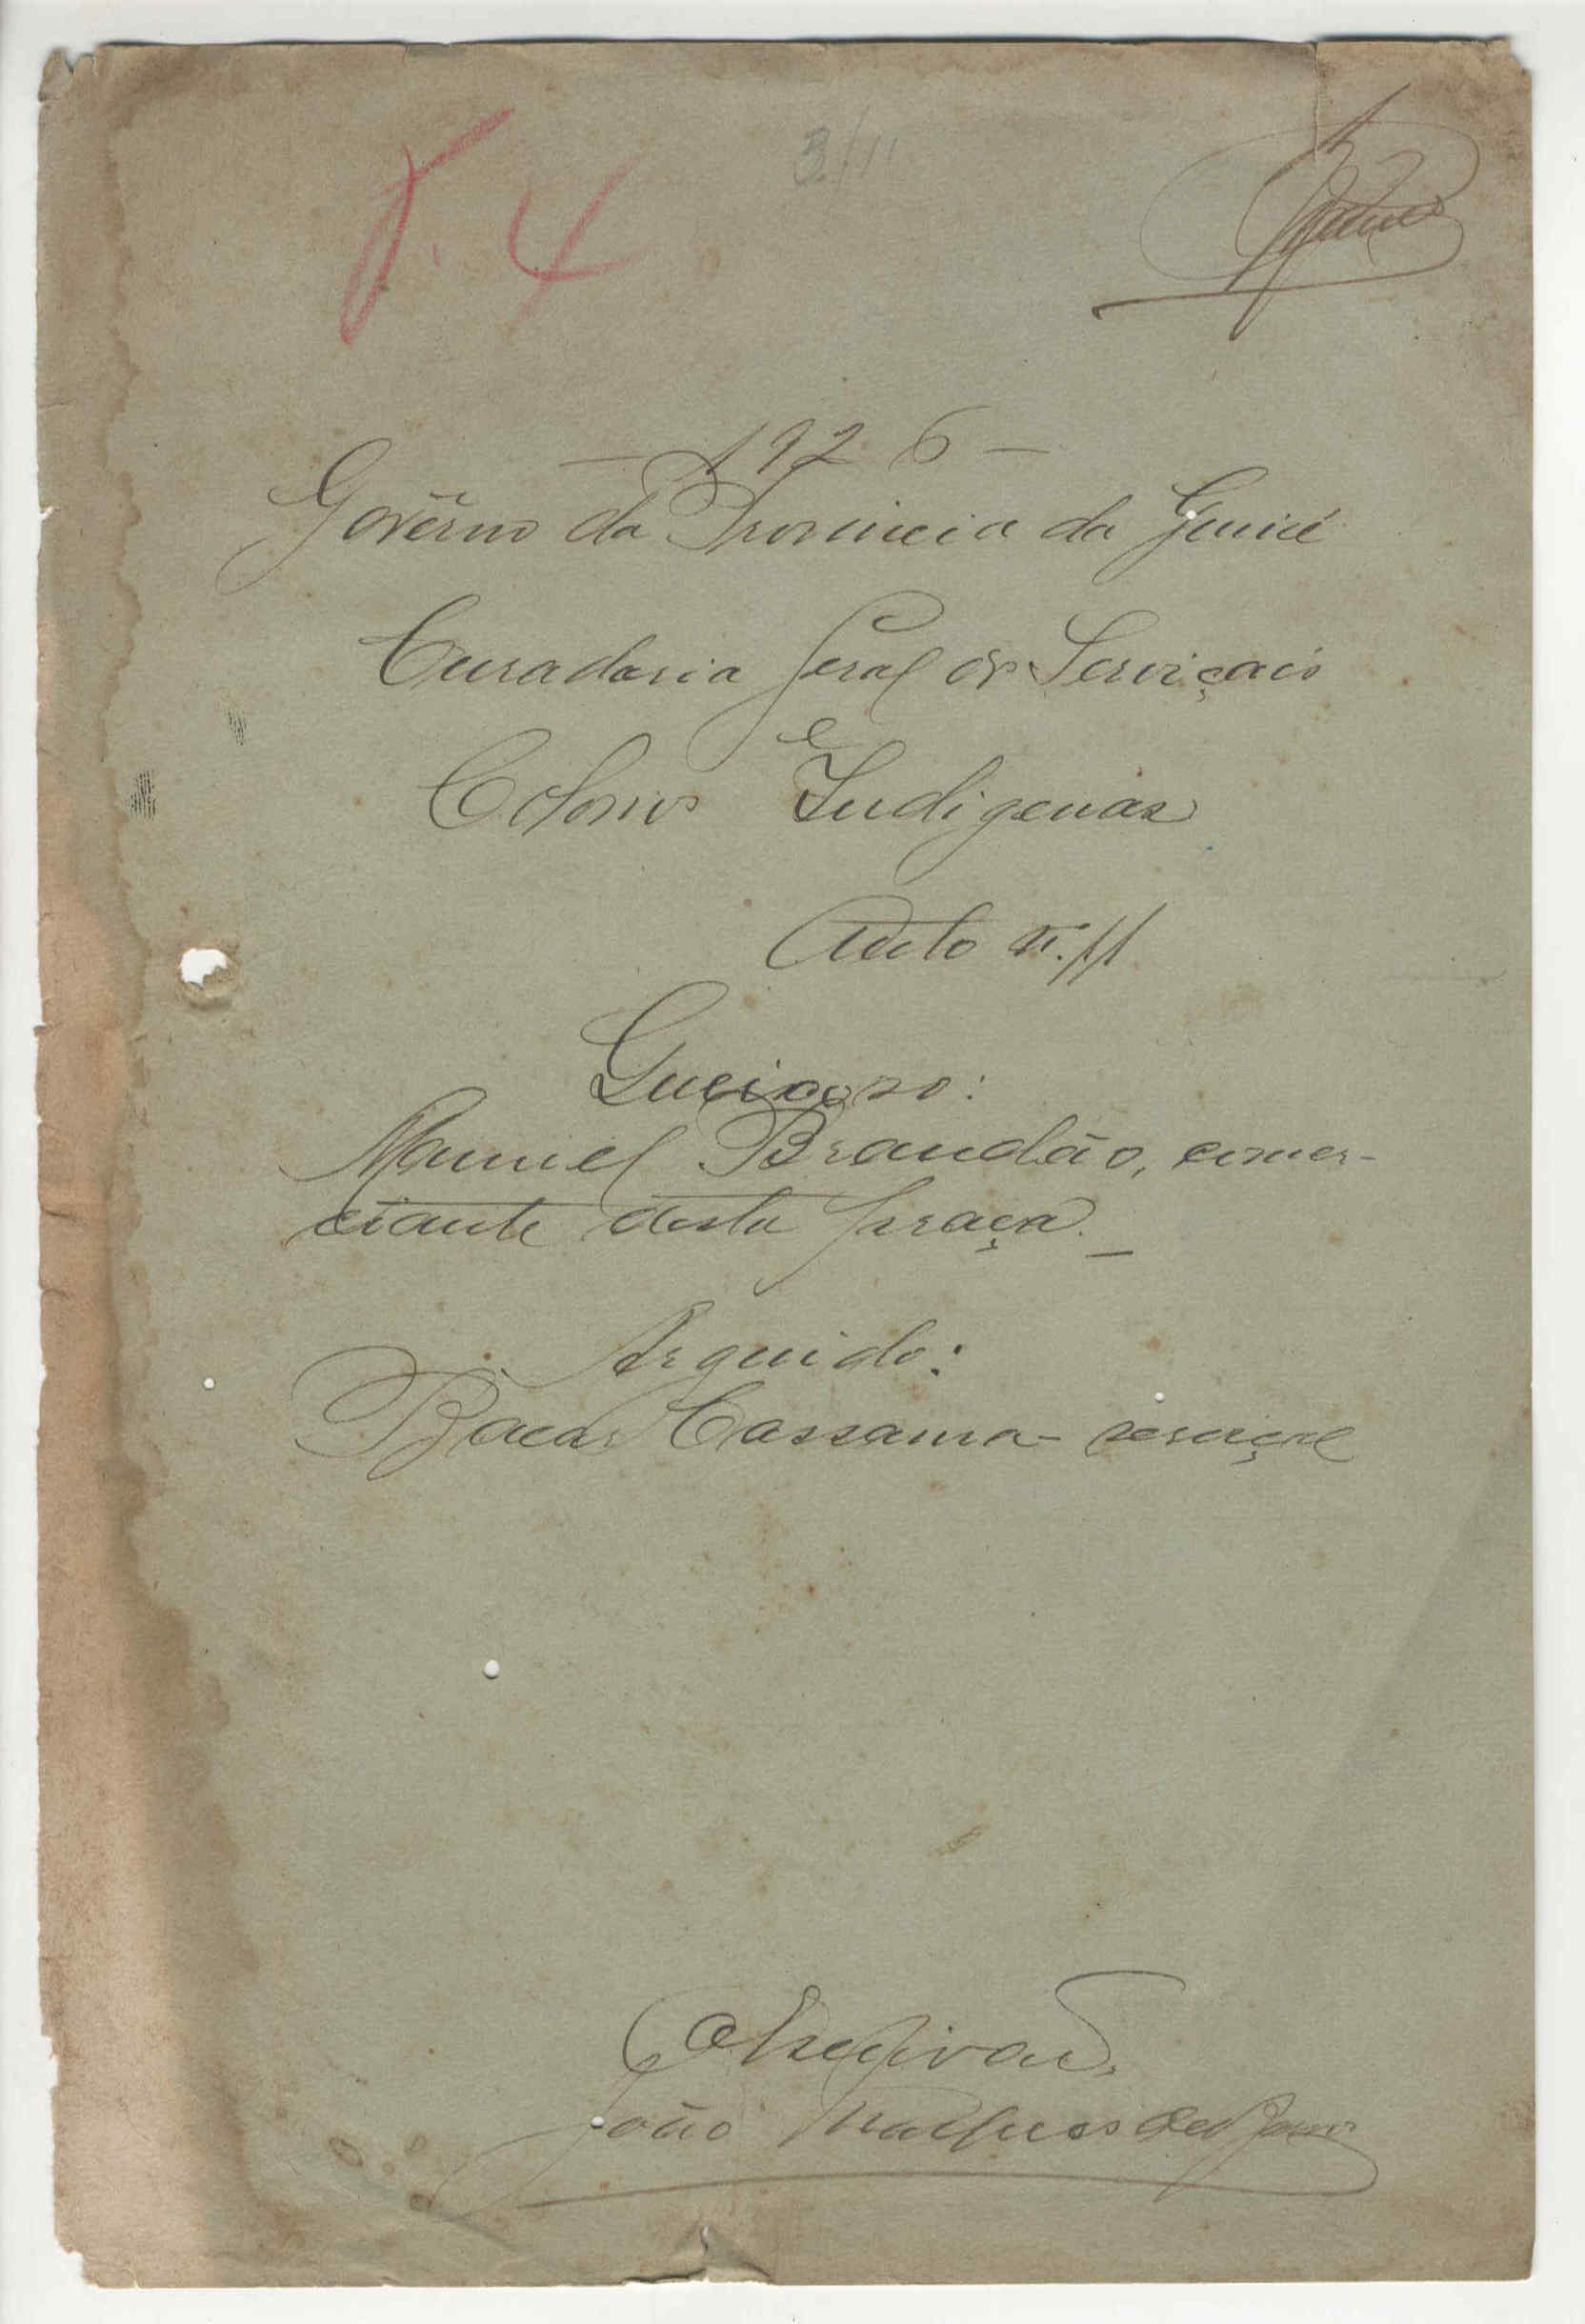 P. 4
3/11
— 1926 —
Govêrno da Provincia da Guiné
Curadoria Geral dos Serviçais
e
Colonos Indigenas
Auto n.º 11
Queixoso:
Manuel Brandão, comer-
ciante desta praça. —
Arguido:
Bacar Cassama - serviçal
O Escrivão,
João